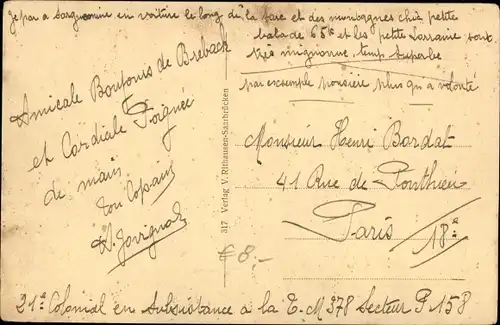 Je par a Sarguemine en voiture le long de la Saie et des montagnes chic petite
balade 65 K et les petite Lorraine sont
très mignonne, temp superbe
par exemple poussière plus qu a volonté
Amicale de Breback
et Cordiale Poignée
de main
ton Copain
317 Verlag V. Rithausen-Saarbrücken
Monsieur Henri Bardat
41 Rue de Ponthieu
Paris 18e
€ 8,-
21e Colonial en Subsistance a la T. M 378 Secteur P 158